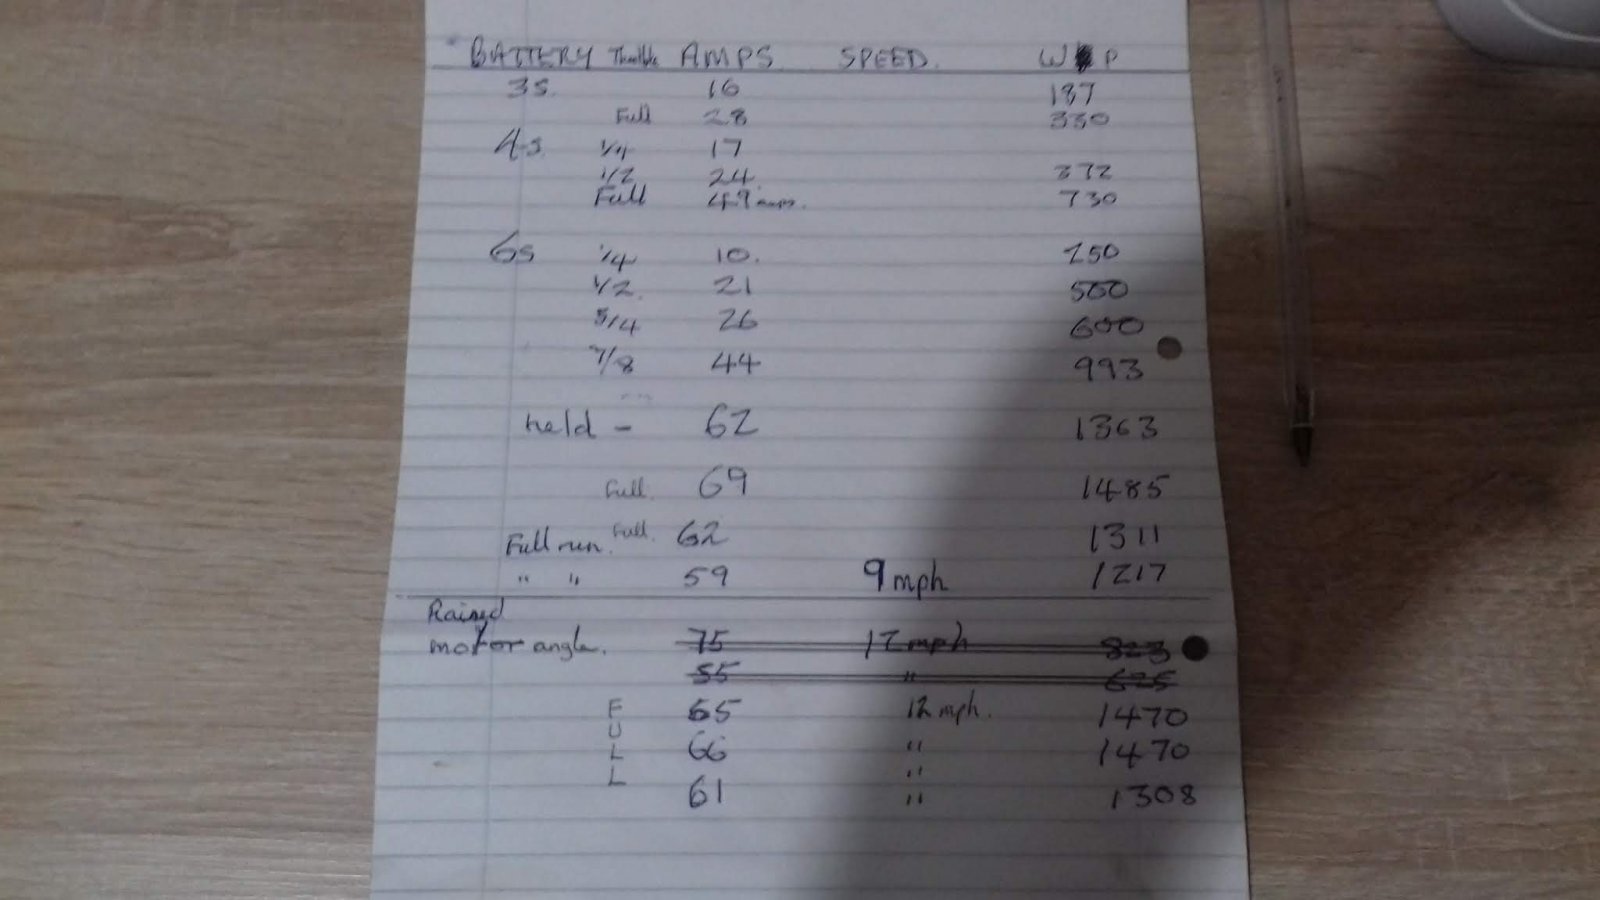 BATTERY Throttle AMPS SPEED. W P
3S. 16 187
Full 28 330
4s. 1/4 17
1/2 24 372
Full 49 amps. 730
6s 1/4 10. 250
1/2. 21 500
3/4 26 600
7/8 44 993
held - 62 1363
Full. 69 1485
Full run. Full. 62 1311
" " 59 9 mph 1217
Raised
motor angle. 75 12 mph 823
55 " 625
F 65 12 mph. 1470
U
L 66 " 1470
L "
61 " 1308